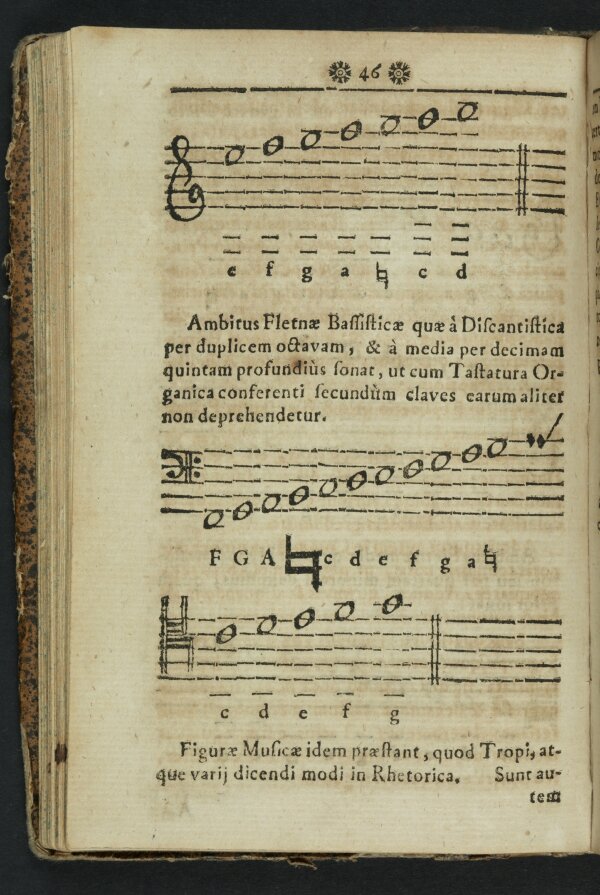 46
e f g a ♮ c d
Ambitus Fletnæ Baſſiſticæ quæ à Diſcantiſtica
per duplicem octavam, & à media per decimam
quintam profundiùs ſonat, ut cum Taſtatura Or-
ganica conferenti ſecundùm claves earum aliter
non deprehendetur.
F G A ♮ c d e f g a ♮
c d e f g
Figuræ Muſicæ idem præſtant, quod Tropi, at-
que varij dicendi modi in Rhetorica. Sunt au-
tem